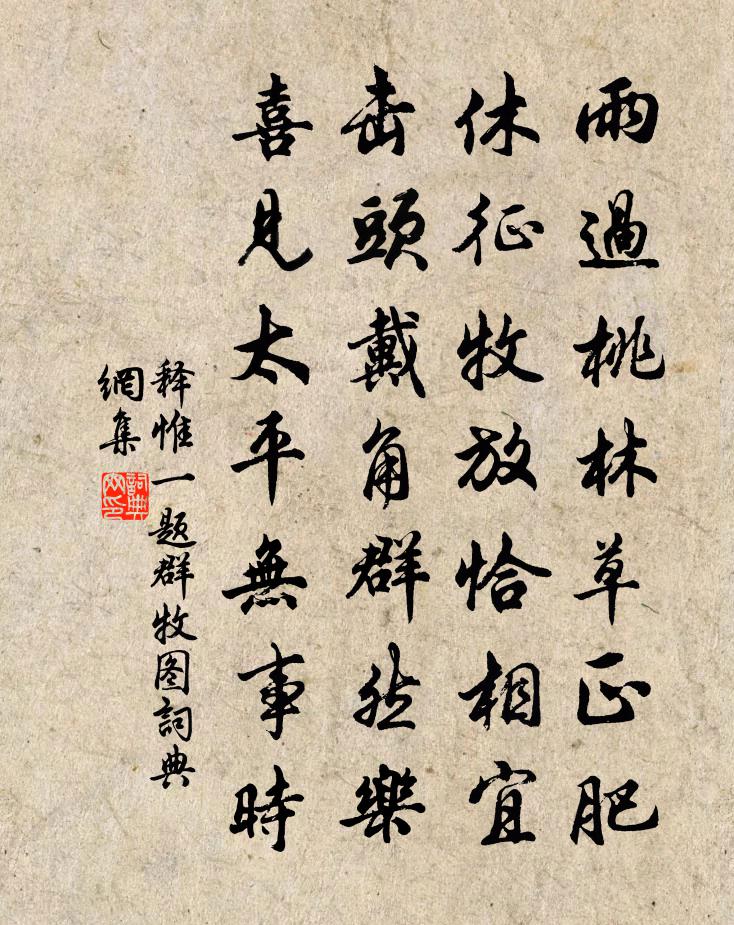 雨過桃林草正肥
休征牧放恰相宜
出頭戴角群然樂
喜見太平無事時
释惟一题群牧图詞典
網集
詞典